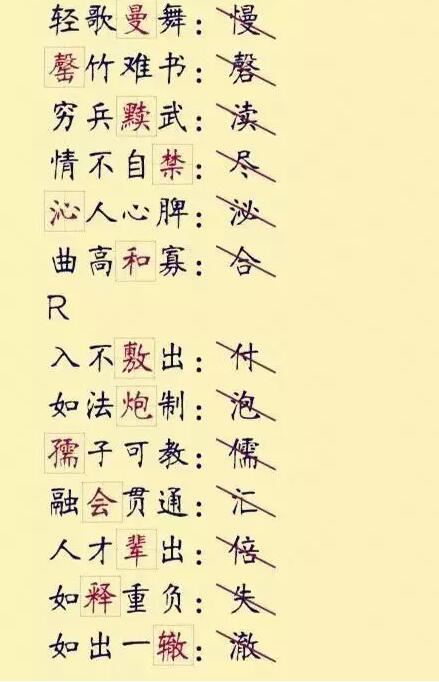 轻歌曼舞：慢
罄竹难书：磬
穷兵黩武：渎
情不自禁：尽
沁人心脾：泌
曲高和寡：合
R
入不敷出：付
如法炮制：泡
孺子可教：儒
融会贯通：汇
人才辈出：倍
如释重负：失
如出一辙：澈